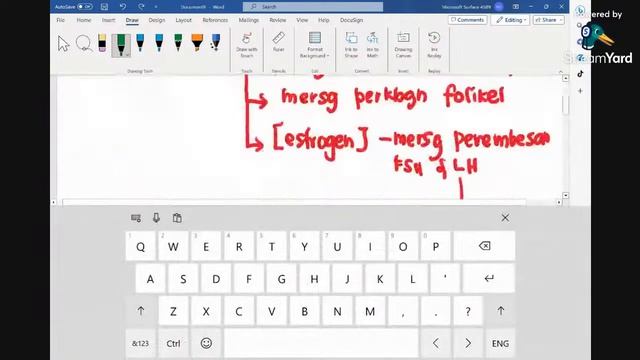 AutoSave
Off
Document9 - Word
Search
Microsoft Surface
File
Home
Insert
Draw
Design
Layout
References
Mailings
Review
View
Help
DocuSign
Comments
Editing
Share
Powered by
StreamYard
Draw with Touch
Ruler
Format Background
Ink to Shape
Ink to Math
Drawing Canvas
Ink Replay
Drawing Tools
Convert
Insert
Replay
mersg perkbgn folikel
[estrogen] - mersg perembesan
FSH & LH
1 2 3 4 5 6 7 8 9 0
Q W E R T Y U I O P
A S D F G H J K L '
Z X C V B N M , . ?
&123 Ctrl ENG